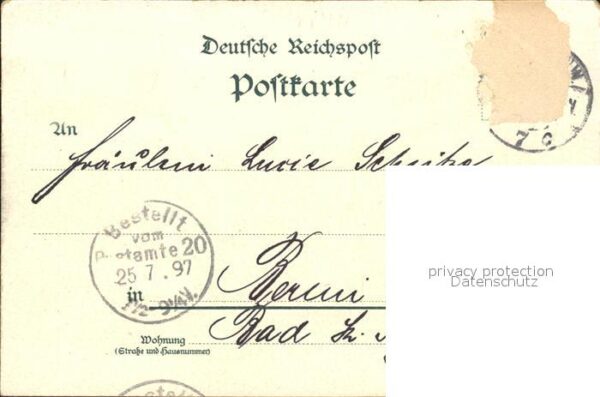 Deutsche Reichspost
Postkarte
An
Fräulein Lucie
Bestellt
vom
Postamte 20
25 7.97
7 c
in Berlin
Bad
privacy protection
Datenschutz
Wohnung
(Straße und Hausnummer)